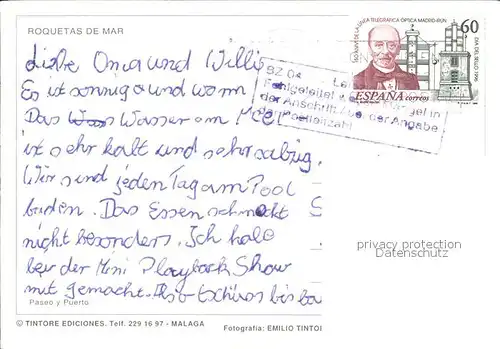 ROQUETAS DE MAR
Liebe Oma und Willi
Es ist sonnig und warm
Das Wasser am Meer
ist sehr kalt und sehr salzig.
Wir sind jeden Tag am Pool
baden. Das Essen schmeckt
nicht besonders. Ich habe
bei der Mini Playback Show
mit gemacht. Also tschüss bis ba
Paseo y Puerto
© TINTORE EDICIONES. Telf. 229 16 97 - MALAGA
Fotografía: EMILIO TINTO
150 ANIV. DE LA LINEA TELEGRAFICA OPTICA MADRID-IRUN
60
DIA DEL SELLO 1996
ESPAÑA correos
BZ 04
Fehlgeleitet
gel in
der Anschrift
der Angabe
privacy protection
Datenschutz